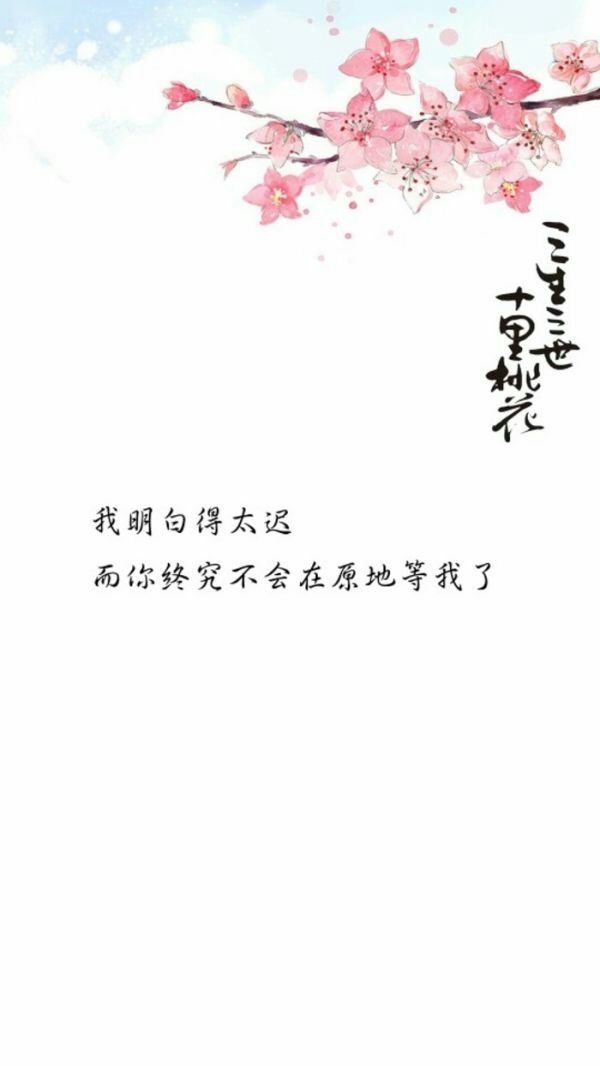 三生三世
十里桃花
我明白得太迟
而你终究不会在原地等我了